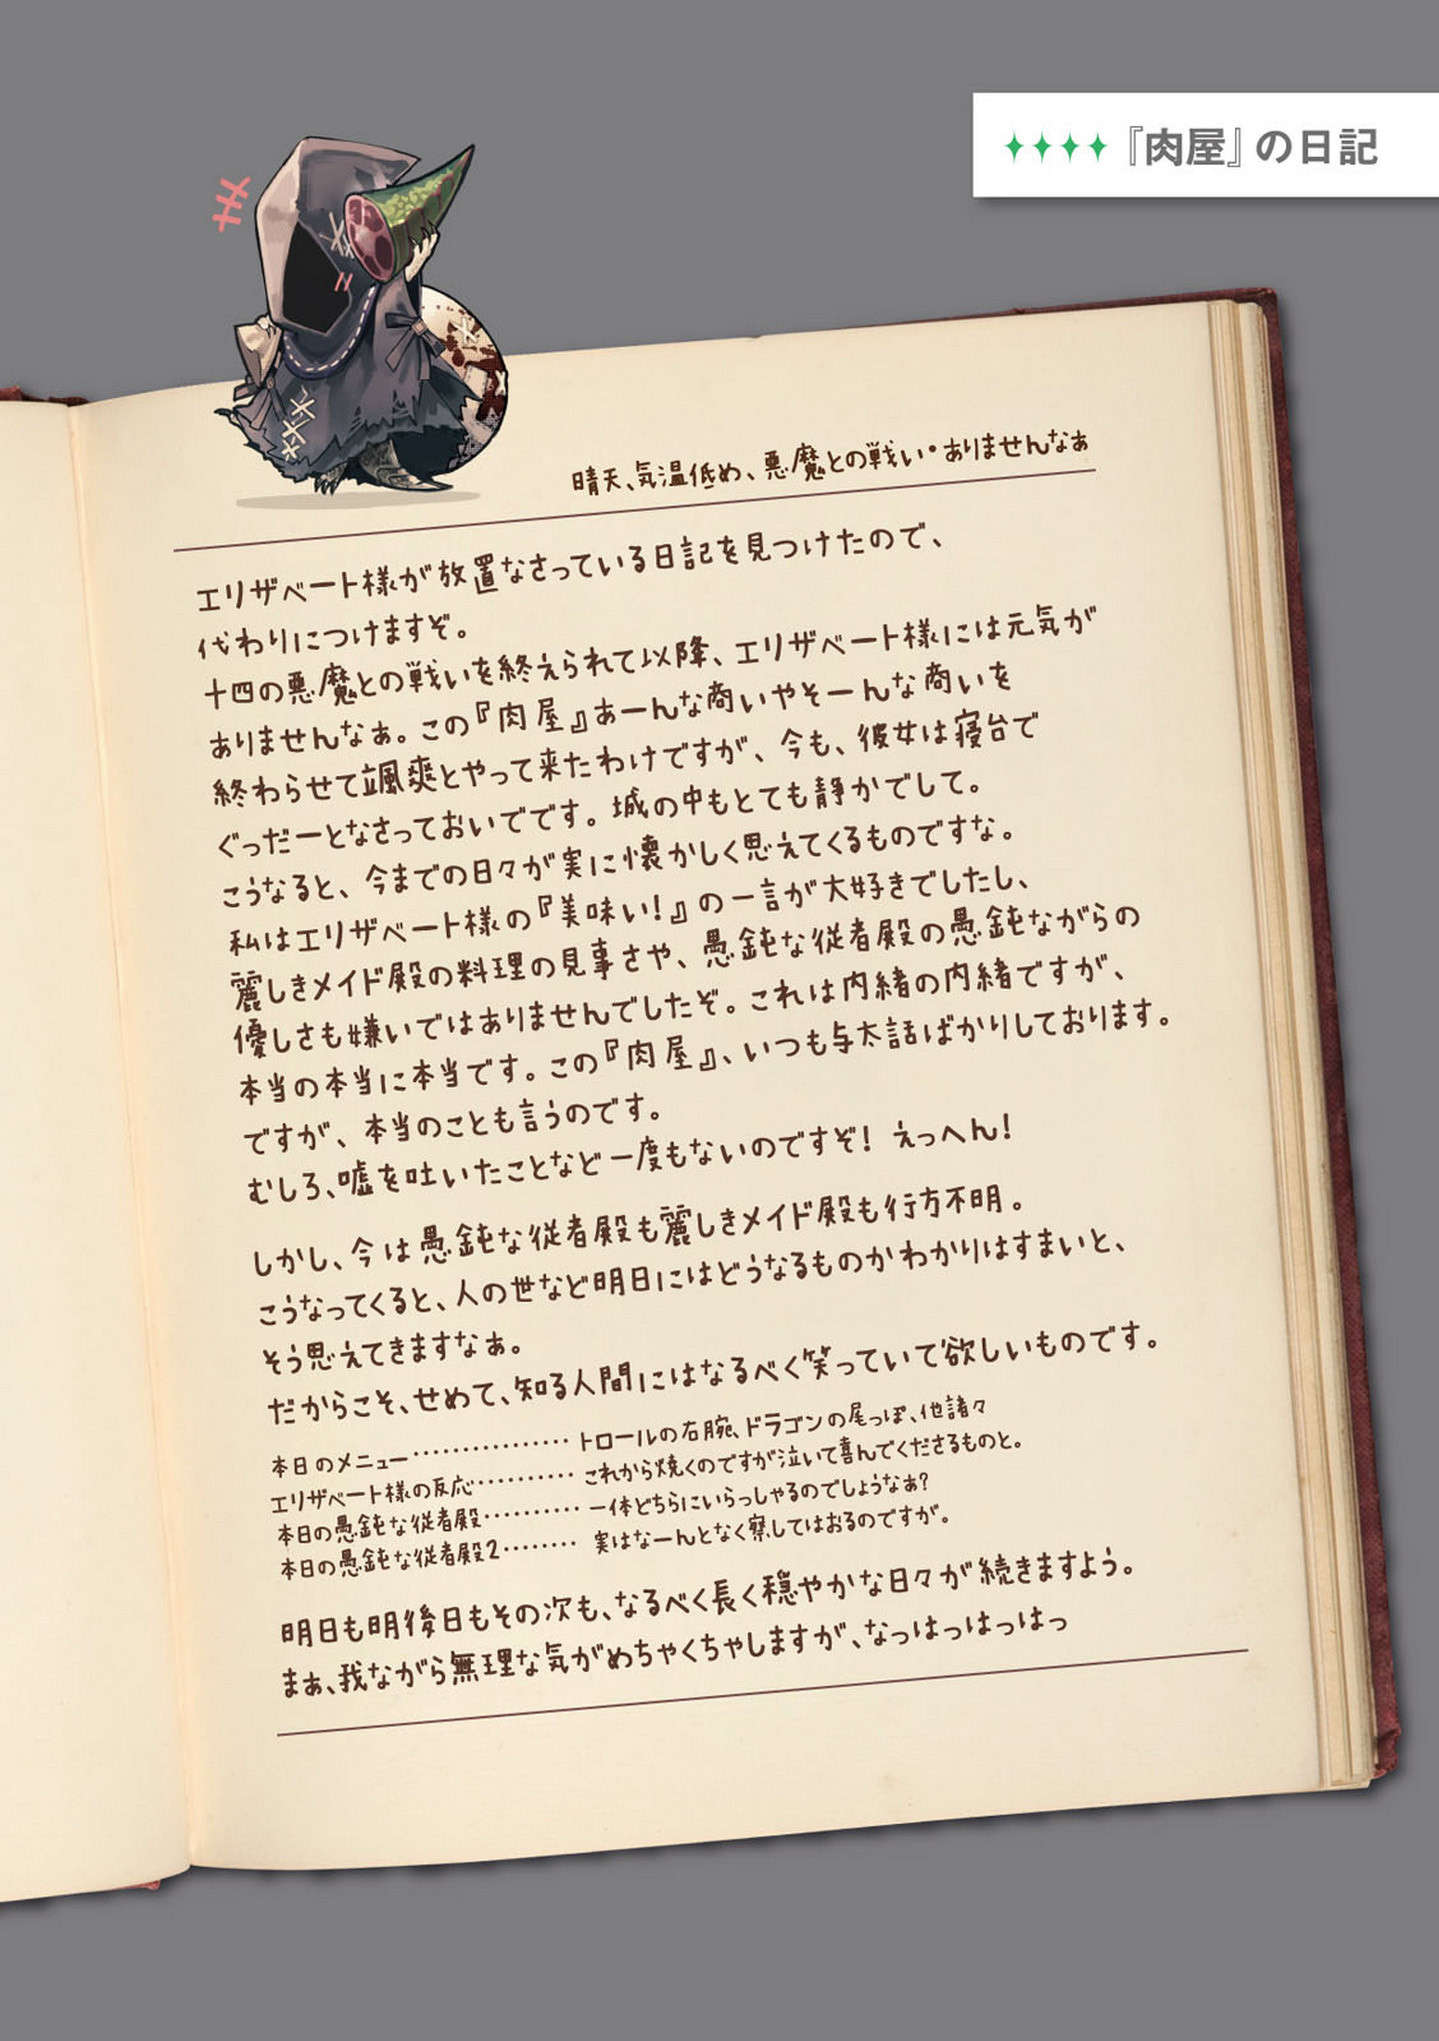 『肉屋』の日記
晴天、気温低め、悪魔との戦い・ありませんなぁ
エリザベート様が放置なさっている日記を見つけたので、
代わりにつけますぞ。
十四の悪魔との戦いを終えられて以降、エリザベート様には元気が
ありませんなぁ。この『肉屋』あーんな商いやそーんな商いを
終わらせて颯爽とやって来たわけですが、今も、彼女は寝台で
ぐっだーとなさっておいでです。城の中もとても静かでして。
こうなると、今までの日々が実に懐かしく思えてくるものですな。
私はエリザベート様の『美味い！』の一言が大好きでしたし、
麗しきメイド殿の料理の見事さや、愚鈍な従者殿の愚鈍ながらの
優しさも嫌いではありませんでしたぞ。これは内緒の内緒ですが、
本当の本当に本当です。この『肉屋』、いつも与太話ばかりしております。
ですが、本当のことも言うのです。
むしろ、嘘を吐いたことなど一度もないのですぞ！ えっへん！
しかし、今は愚鈍な従者殿も麗しきメイド殿も行方不明。
こうなってくると、人の世など明日にはどうなるものかわかりはすまいと、
そう思えてきますなぁ。
だからこそ、せめて、知る人間にはなるべく笑っていて欲しいものです。
本日のメニュー……………… トロールの右腕、ドラゴンの尾っぽ、他諸々
エリザベート様の反応………… これから焼くのですが泣いて喜んでくださるものと。
本日の愚鈍な従者殿………… 一体どちらにいらっしゃるのでしょうなぁ？
本日の愚鈍な従者殿2……… 実はなーんとなく察してはおるのですが。
明日も明後日もその次も、なるべく長く穏やかな日々が続きますよう。
まぁ、我ながら無理な気がめちゃくちゃしますが、なっはっはっはっ